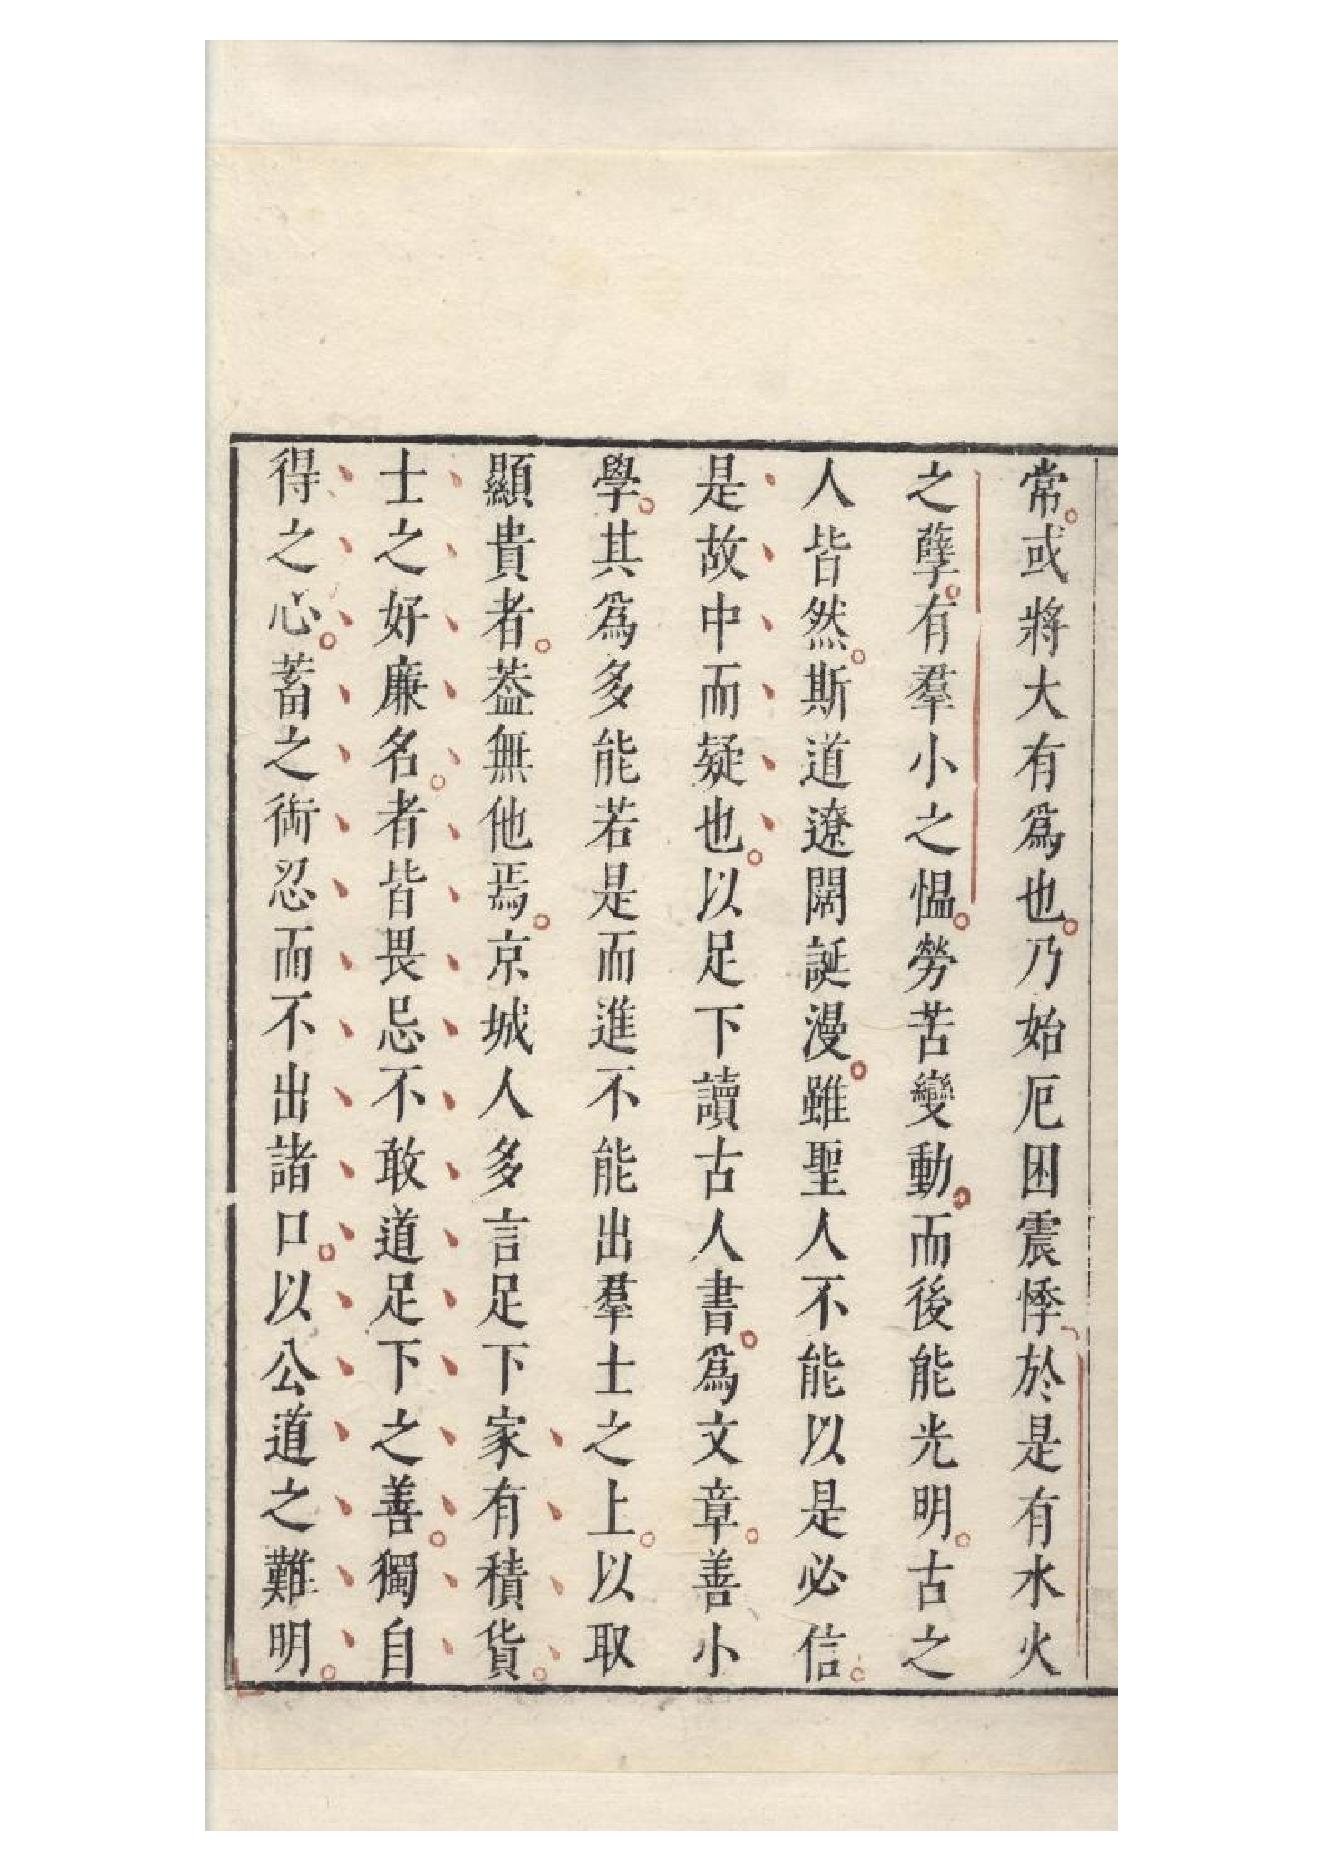 常或將大有爲也乃始厄困震悸於是有水火
之孽有羣小之愠勞苦變動而後能光明古之
人皆然斯道遼闊誕漫雖聖人不能以是必信
是故中而疑也以足下讀古人書爲文章善小
學其爲多能若是而進不能出羣士之上以取
顯貴者葢無他焉京城人多言足下家有積貨
士之好廉名者皆畏忌不敢道足下之善獨自
得之心蓄之銜忍而不出諸口以公道之難明